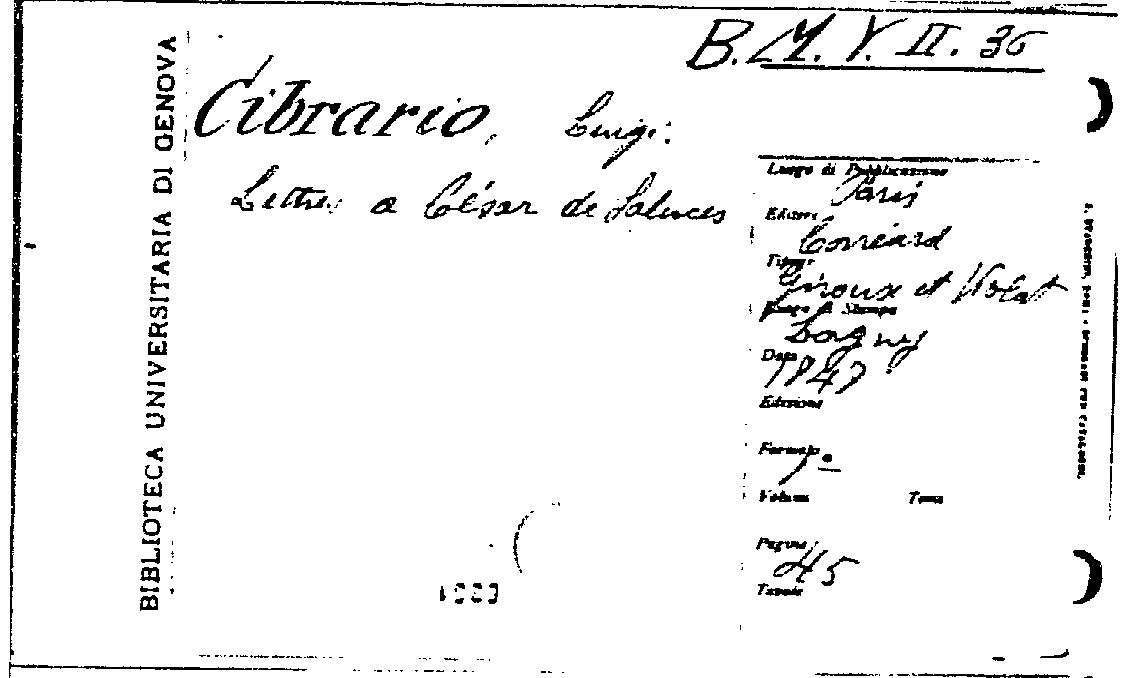 B.M.Y. II. 36
BIBLIOTECA UNIVERSITARIA DI GENOVA
Cibrario, Luigi:
Lettres a César de Saluces
Luogo di Pubblicazione
Paris
Editore
Corréard
Tipogr.
Giroux et Vialat
Luogo di Stampa
Lagny
Data
1847
Edizione
Formato
Volumi Tomi
Pagine
45
Tavole